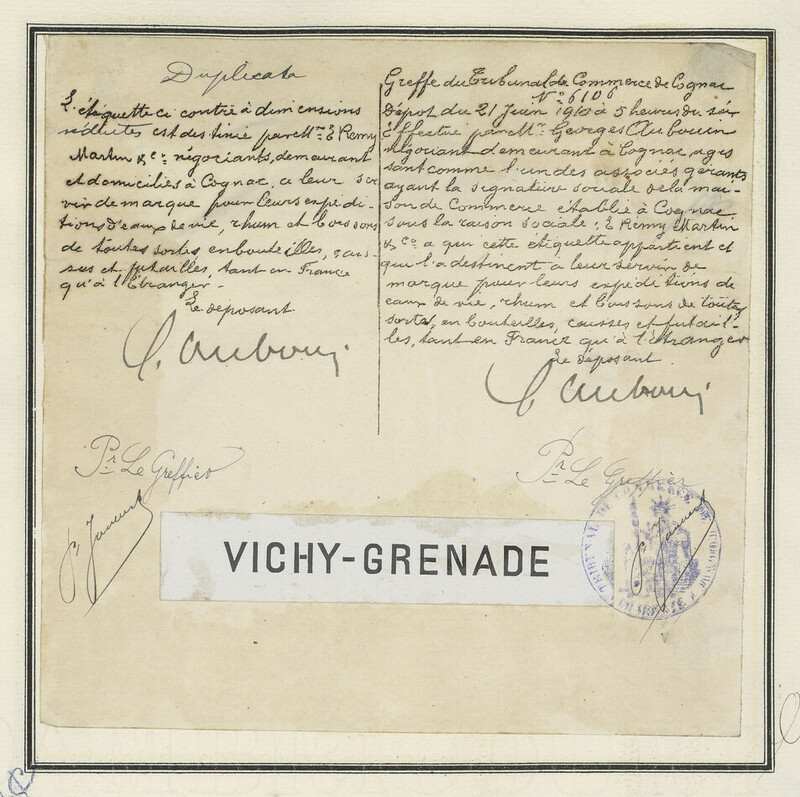 Duplicata
L'étiquette ci contre à dimensions
réduites est destinée par Mrs E. Remy
Martin & Co négociants, demeurant
et domiciliés à Cognac, a leur ser
vir de marque pour leurs expédi-
tions d'eaux de vie, rhum et boissons
de toutes sortes en bouteilles, cais-
ses et futailles, tant en France
qu'à l'Étranger.
Le déposant
Pr Le Greffier
Greffe du Tribunal de Commerce de Cognac
No 6106
Dépot du 21 Juin 1910 à 5 heures du soir
Effectué par Mr Georges Auboin
négociant demeurant à Cognac, agis
sant comme l'un des associés gérants
ayant la signature sociale de la mai-
son de Commerce établie à Cognac
sous la raison sociale: E. Remy Martin
& Co a qui cette étiquette appartient et
qui l'a destinent à leur servir de
marque pour leurs expéditions de
eaux de vie, rhum et boissons de toutes
sortes, en bouteilles, caisses et futail-
les, tant en France qu'à l'étranger
Le déposant.
Pr Le Greffier
VICHY-GRENADE
TRIBUNAL DE COMMERCE DE COGNAC